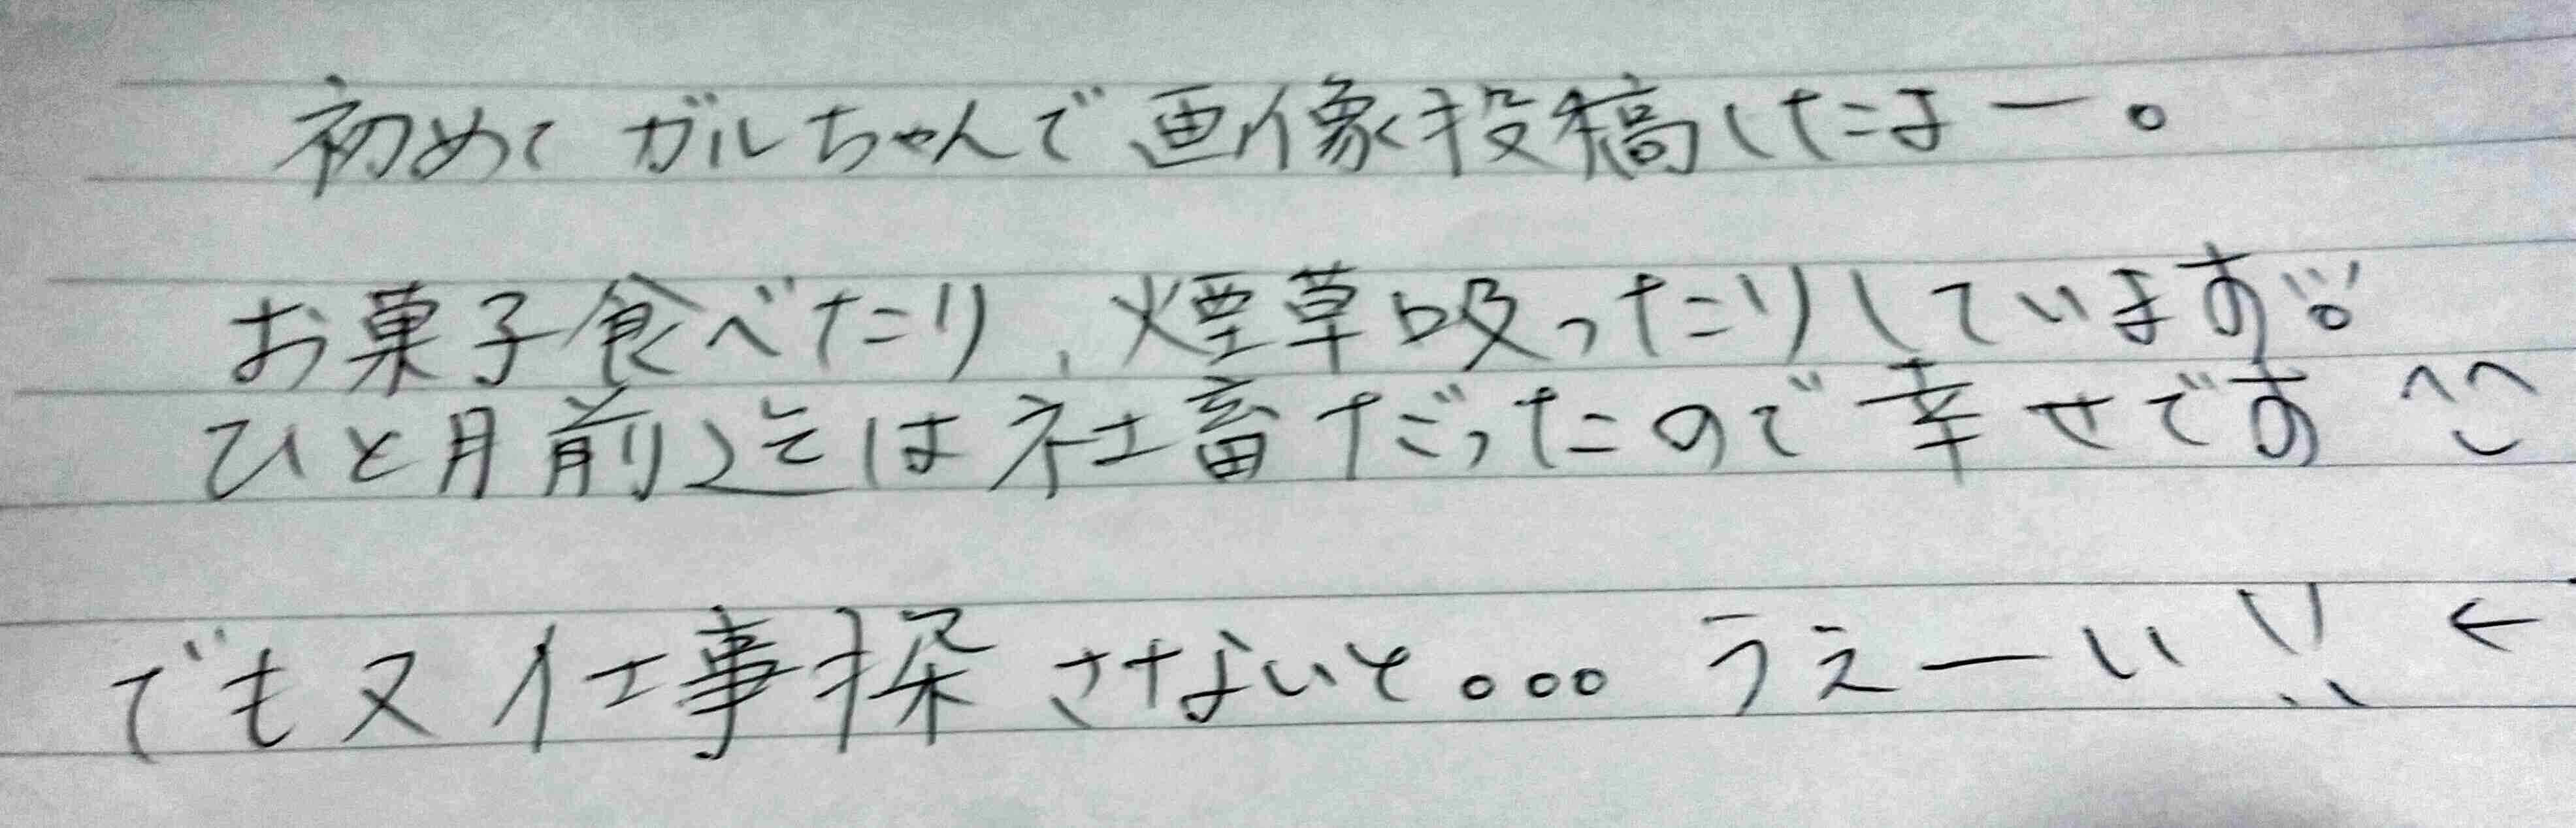 初めてガルちゃんで画像投稿したよー。
お菓子食べたり、煙草吸ったりしています
ひと月前迄は社畜だったので幸せです ^^
でも又仕事探さないと。。。うえーい!! ←